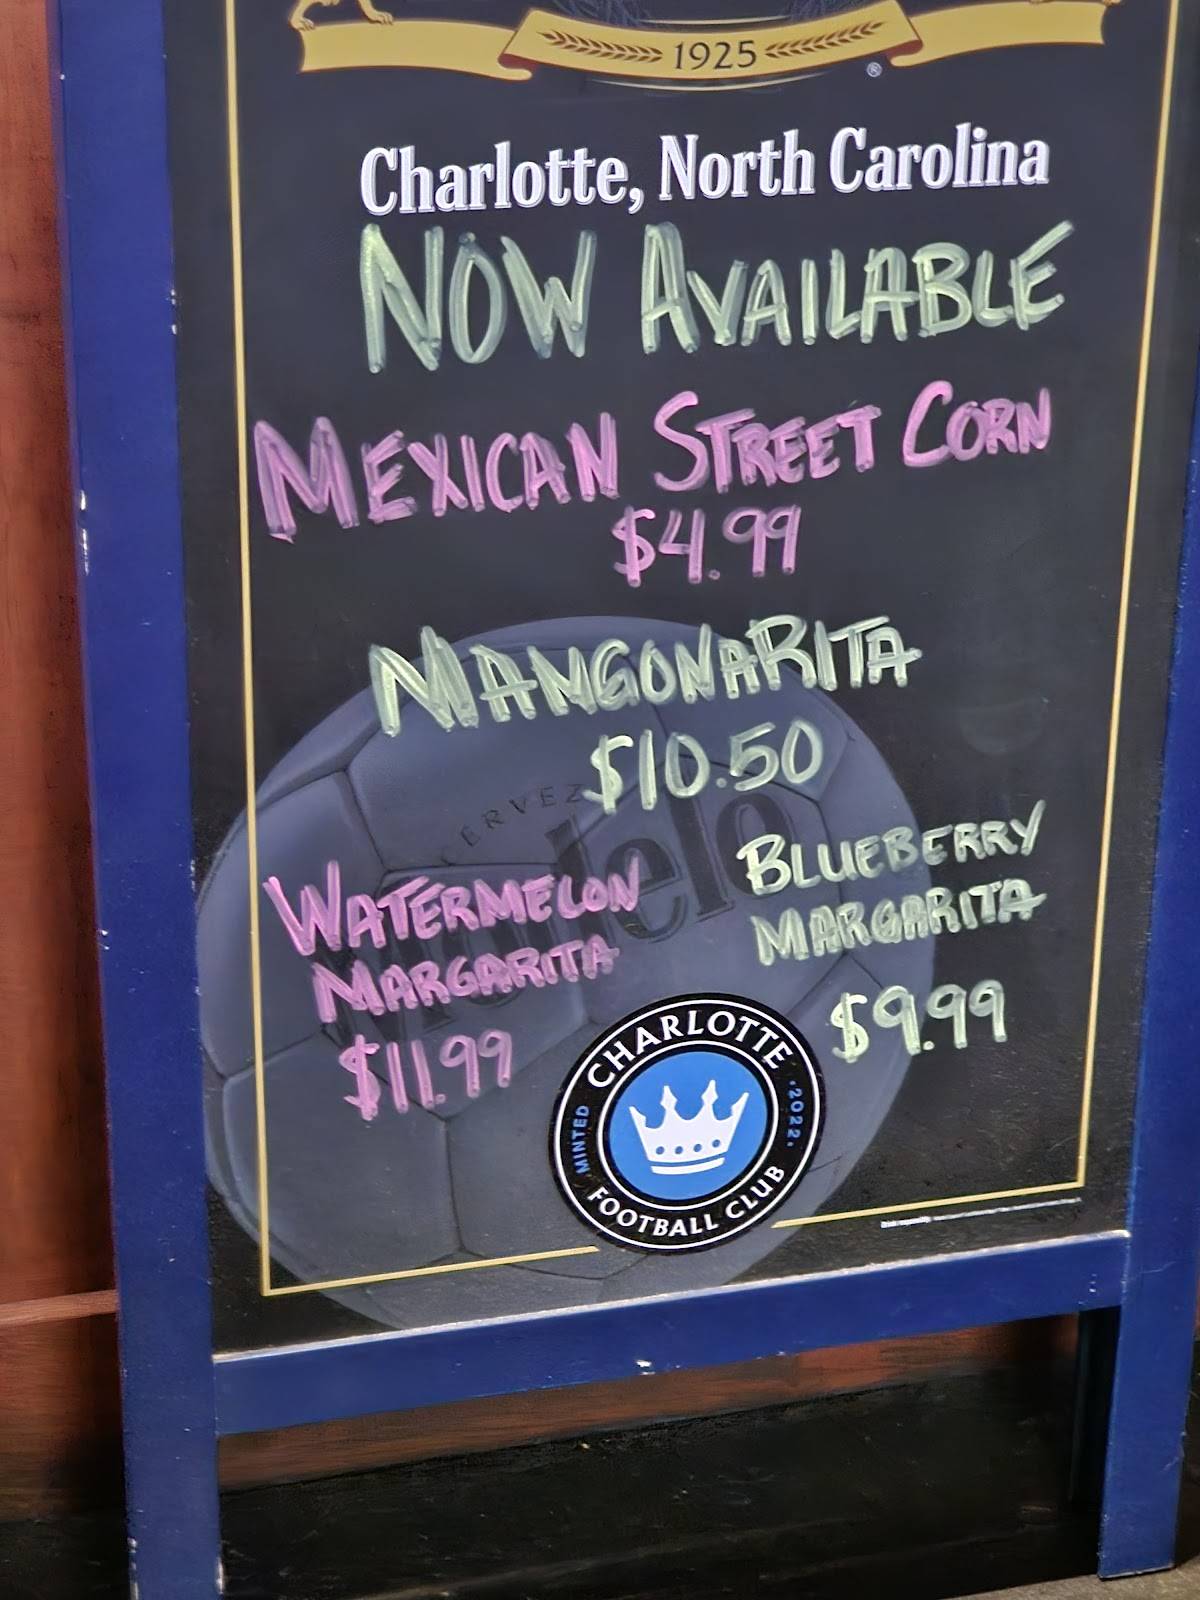 1925
®
Charlotte, North Carolina
NOW AVAILABLE
MEXICAN STREET CORN
$4.99
MANGONARITA
$10.50
CERVEZ
Modelo
WATERMELON
MARGARITA
$11.99
BLUEBERRY
MARGARITA
$9.99
CHARLOTTE
MINTED
·2022·
FOOTBALL CLUB